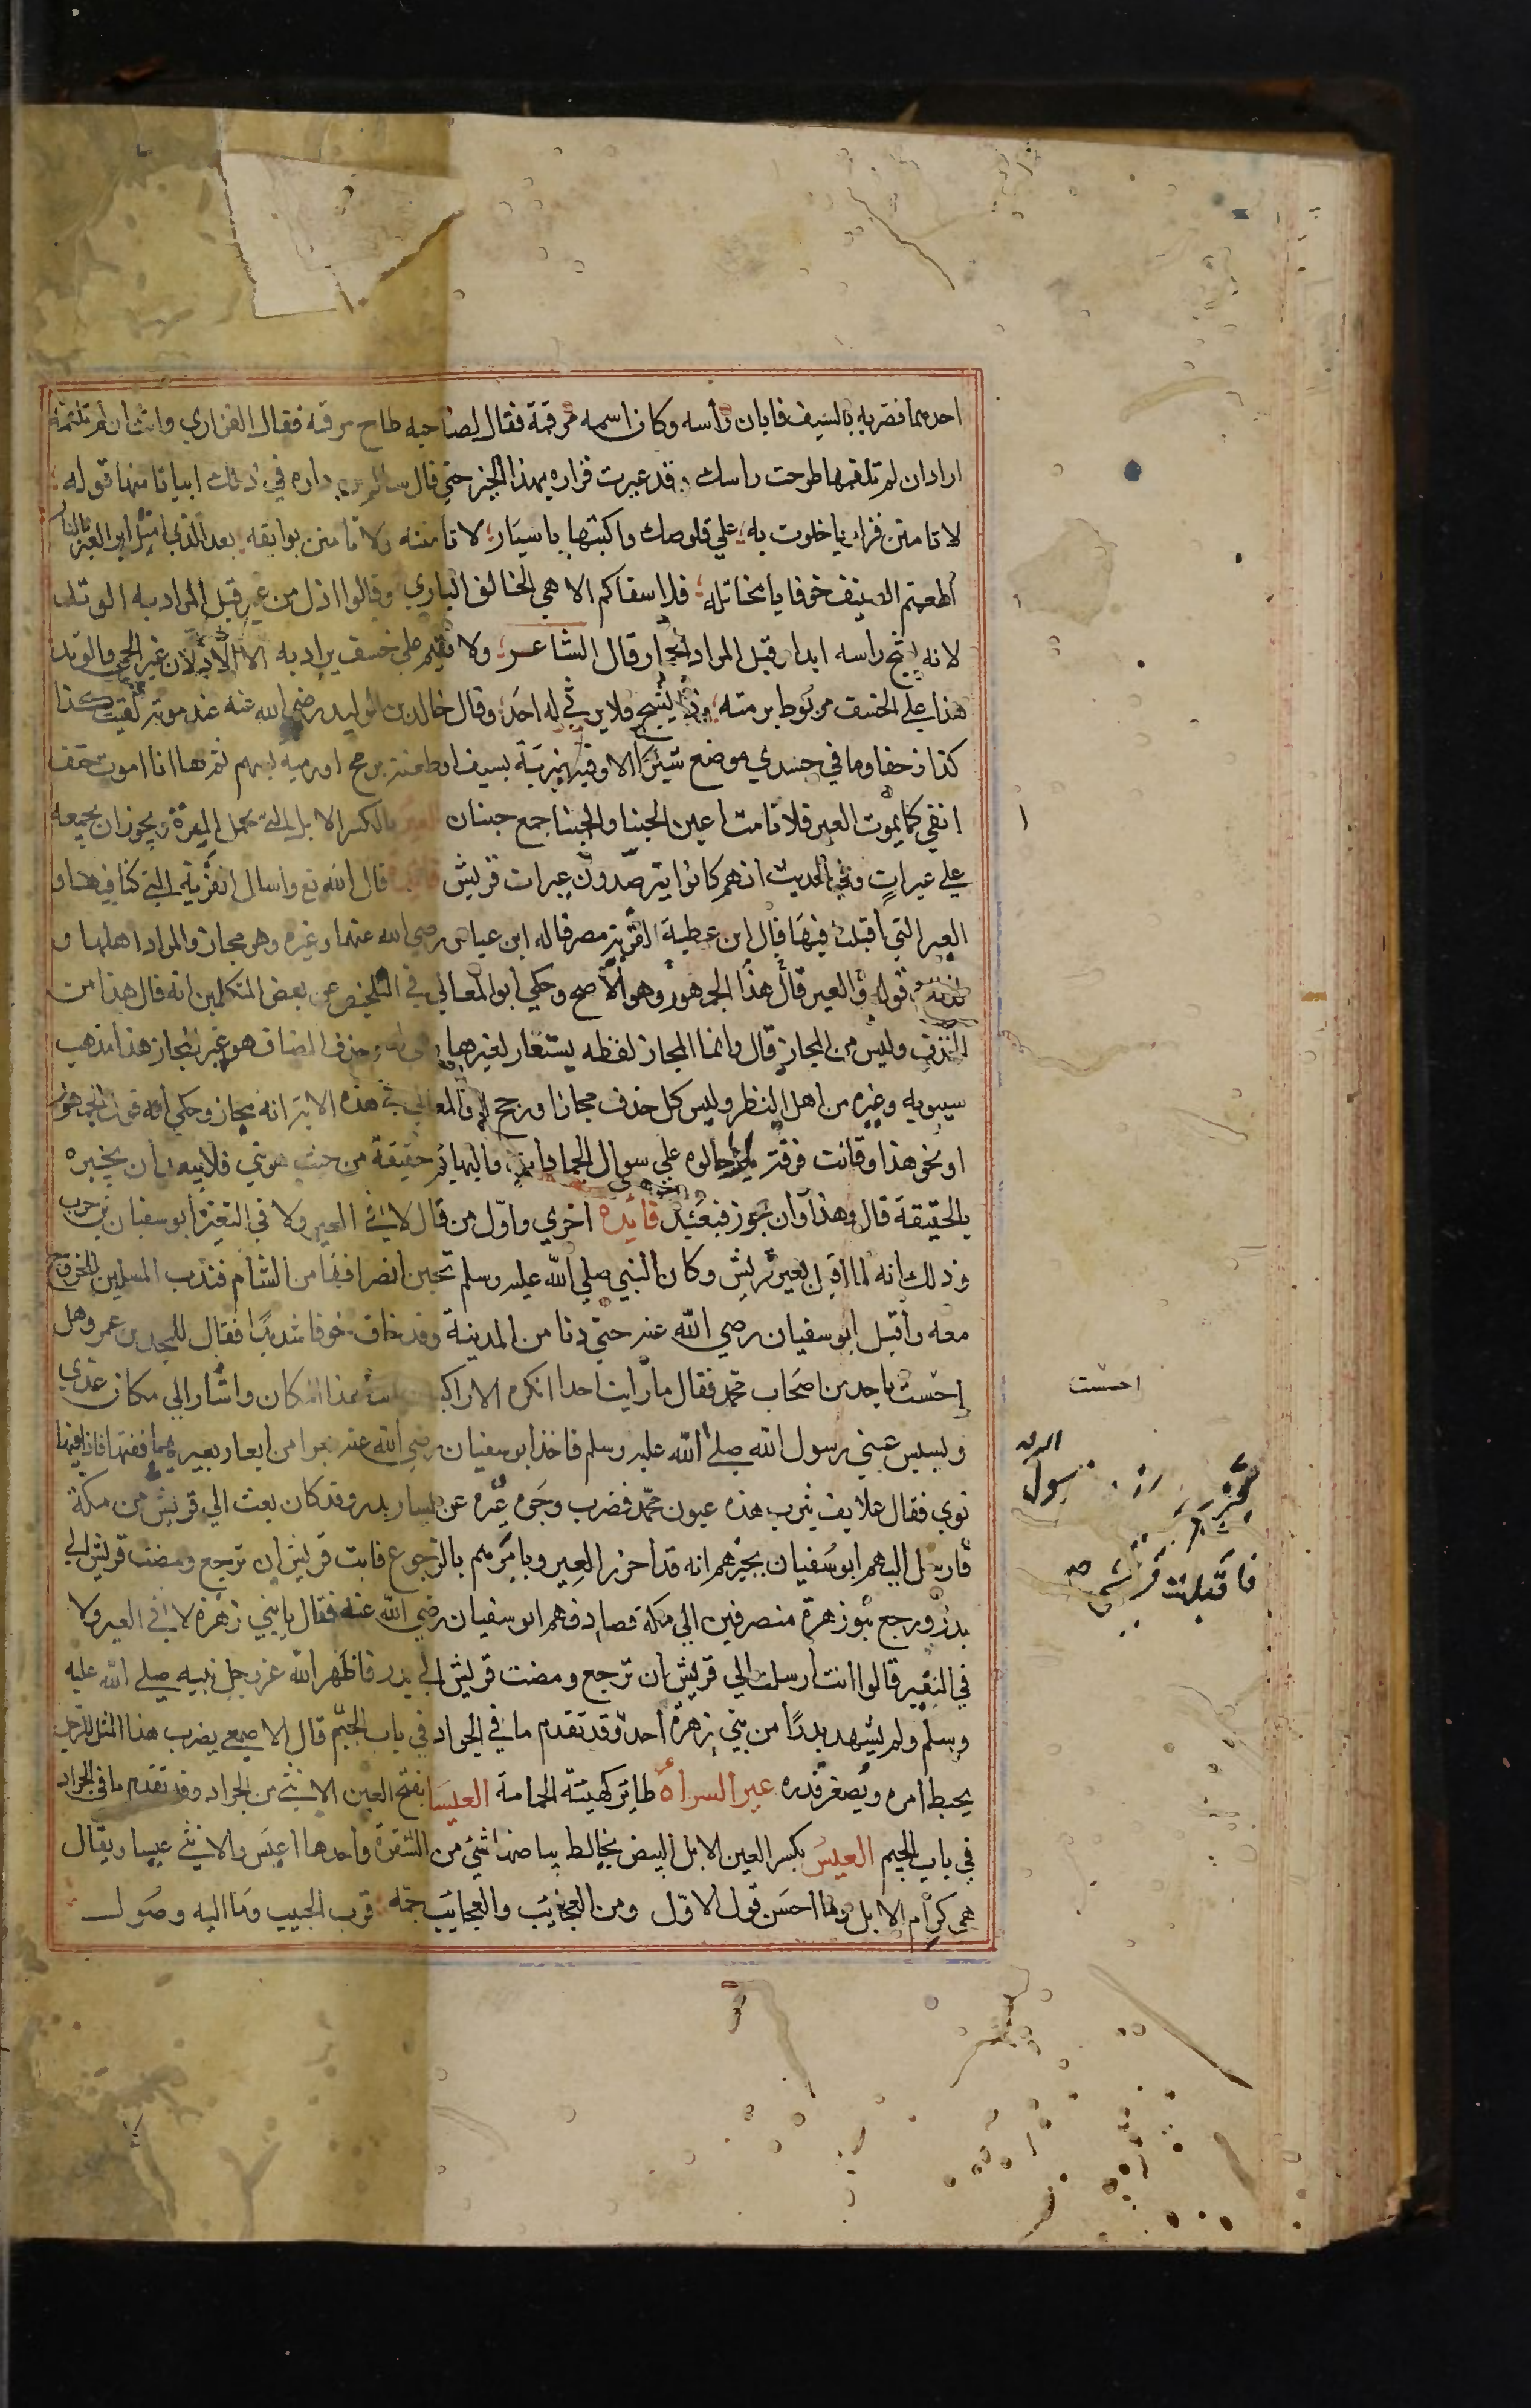 احدهما فضربه بالسيف فابان رأسه وكان اسمه مرقمة فقال لصاحبه طاح مرقمة فقال الفزاري وانت ان لم تلقمه
اراد ان لم تلقمها طرحت راسك وقد عيرت فزاره بهذا الخبر حتي قال سالم بن داره في ذلك ابياتا منها قوله
لا تا منن فزاريا خلوت به علي قلوصك واكتبها باسيار لا تا مننه ولا تا منن بوايقه بعد الذي امتل اير العير بالنار
اطعمتم الضيف خوفا يا مخاتلة فلا سقاكم الاهي الخالق الباري وقالوا اذل من عير قيل المراد به الوتد
لانه يشج رأسه ابدا وقيل المراد الحمار قال الشاعر ولا يقيم علي خسف يراد به الا الاذلان عير الحي والوتد
هذا علي الخسف مربوط برمته وذا يشج فلا يرثي له احد وقال خالد بن الوليد رضي الله عنه عند موته لقيت كذا
كذا زحفا وما في جسدي موضع شبرا الا وفيه ضربة بسيف او طعنة برمح او رمية بسهم ثم ها انا اموت حتف
انفي كما يموت العير فلا نامت اعين الجبنا والجبنا جمع جبنان العير بالكسر الابل التي تحمل الميرة ويجوز ان يجمعه
علي عيرات وفي الحديث انهم كانوا يترصدون عيرات قريش قال الله تع واسال القرية التي كنا فيها و
العير التي أقبلت فيها قال ابن عطية القرية مصر قاله ابن عباس رضي الله عنهما وغيره وهو مجاز والمراد اهلها و
قوله والعير قال هذا الجمهور وهو الاصح وحكي ابو المعالي في التلخيص عن بعض المتكلمين انه قال هذا من
الحذف وليس من المجاز قال وانما المجاز لفظه يستعار لغير ما وحذف المضاف هو عين المجاز هذا مذهب
سيبويه وغيره من اهل النظر وليس كل حذف مجازا ورجح ابو المعالي في هذه الاية انه مجاز وحكي انه قول الجمهور
او نحو هذا وقالت فرقة بل احالوه علي سوال الجمادات والبهايم حقيقة من حيث هو نبي فلا يبعد ان يخبره
بالحقيقة قال وهذا وان جوز فبعيد فائده اخري واول من قال لا في العير ولا في النفير أبو سفيان بن حرب
وذلك انه لما اقبل بعير قريش وكان النبي صلي الله عليه وسلم تحين انصرافها من الشام فندب المسلمين للخروج
معه وأقبل ابو سفيان رضي الله عنه حتي دنا من المدينة وقد خاف خوفا شديدا فقال للمجدي بن عمر وهل
احست باحد من اصحاب محمد فقال ما رأيت احدا انكره الا راكبين بهذا المكان واشار الي مكان عدي
وبسبس عيني رسول الله صلي الله عليه وسلم فاخذ ابو سفيان رضي الله عنه بعرا من ابعار بعيريهما ففتها فاذا فيها
نوي فقال علايف يثرب هذه عيون محمد فضرب وجوه عيره عن يسار بدر وقد كان بعث الي قريش من مكة
فارسل اليهم ابو سفيان يخبرهم انه قد احرز العير ويامرهم بالرجوع فابت قريش ان ترجع ومضت قريش الي
بدر ورجع بنو زهرة منصرفين الي مكة فصادفهم ابو سفيان رضي الله عنه فقال يا بني زهرة لا في العير ولا
في النفير قالوا انت ارسلت الي قريش ان ترجع ومضت قريش الي بدر فاظهر الله عز وجل نبيه صلي الله عليه
وسلم ولم يشهد بدرا من بني زهرة احد وقد تقدم ما في الجواد في باب الجيم قال الاصمعي يضرب هذا المثل للرجل
يحبط امره ويصغر قدره عير السراة طاير كهيئة الحمامة العيسا بفتح العين الانثي من الجراد وقد تقدم ما في الجراد
في باب الجيم العيس بكسر العين الابل البيض يخالط بياضها شئ من الشقرة واحدها اعيس والانثي عيسا ويقال
هي كرام الابل وما احسن قول الاول ومن العجايب والعجايب جمة قرب الحبيب وما اليه وصول
احسست
رسول
فاقبلت قريش صح